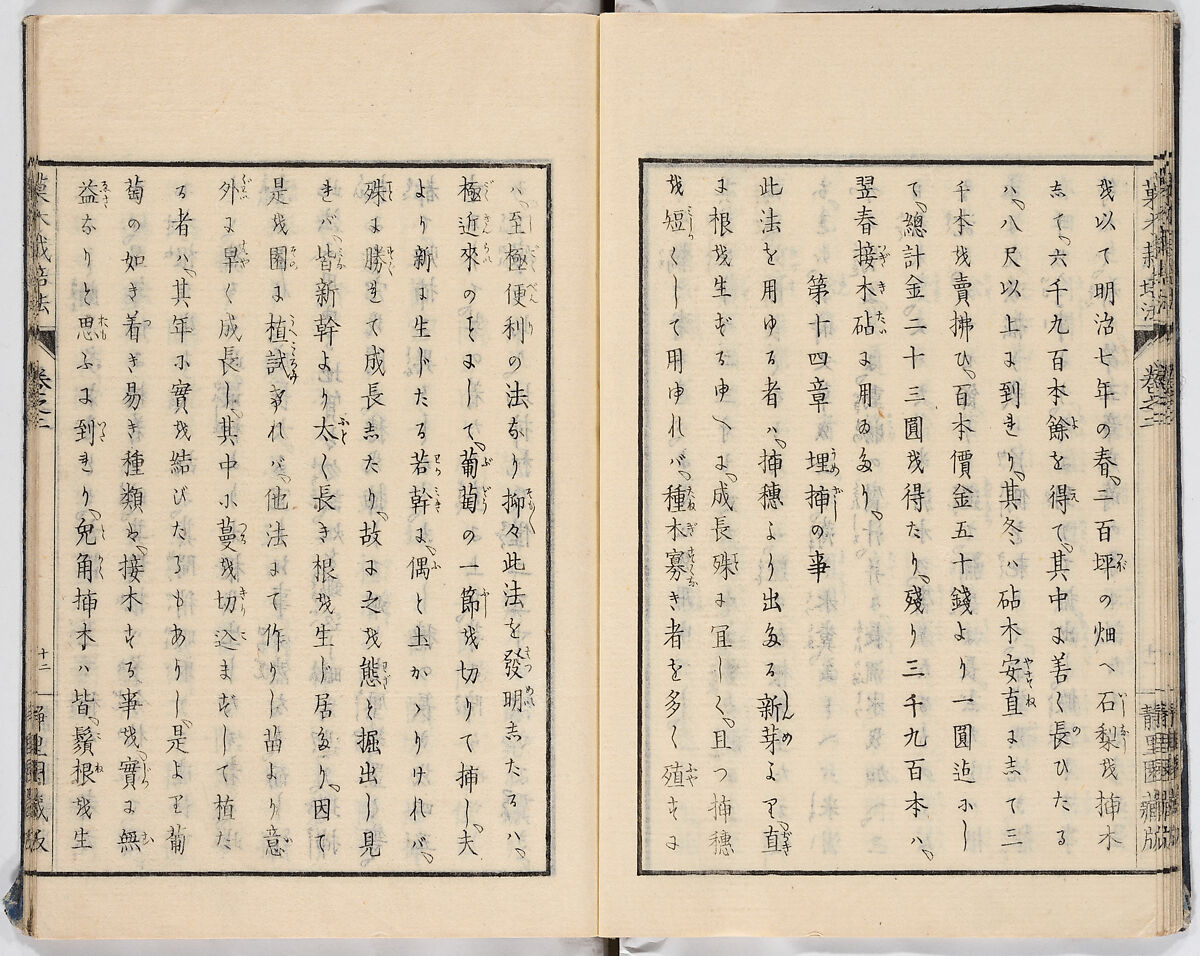 菓木栽培法 卷之三
靜里園藏版
を以て明治七年の春、二百坪の畑へ石梨を揷木
志て、六千九百本餘を得て、其中に善く長ひたる
ハ、八尺以上に到れり、其冬ハ砧木安直に志て三
千本を賣拂ひ、百本價金五十錢より一圓迠にし
て、總計金二十三圓を得たり、殘り三千九百本ハ、
翌春接木砧に用ゐたり、
第十四章 埋揷の事
此法を用ゆる者ハ、揷穗より出たる新芽より直
に根を生ずる申へに、成長殊に宜しく、且つ揷穗
を短くして用申れバ、種木寡き者を多く殖すに
ハ、至極便利の法なり抑々此法を發明志たるハ、
極近來のことにして、葡萄の一節を切りて揷し、夫
より新に生じたる若幹に、偶と土かゝりけれバ、
殊に勝れて成長志たり、故に之を態と掘出し見
れバ、皆新幹より太く長き根を生じ居たり、因て
是を園に植試みれバ、他法にて作りし苗より意
外に早く成長し、其中に蔓を切込まずして植た
る者ハ、其年に實を結びたるもありし、是より葡
萄の如き着き易き種類は、接木する事を、實に無
益なりと思ふに到れり、兎角揷木ハ皆、鬚根を生
菓木栽培法 卷之三
十二
靜里園藏版